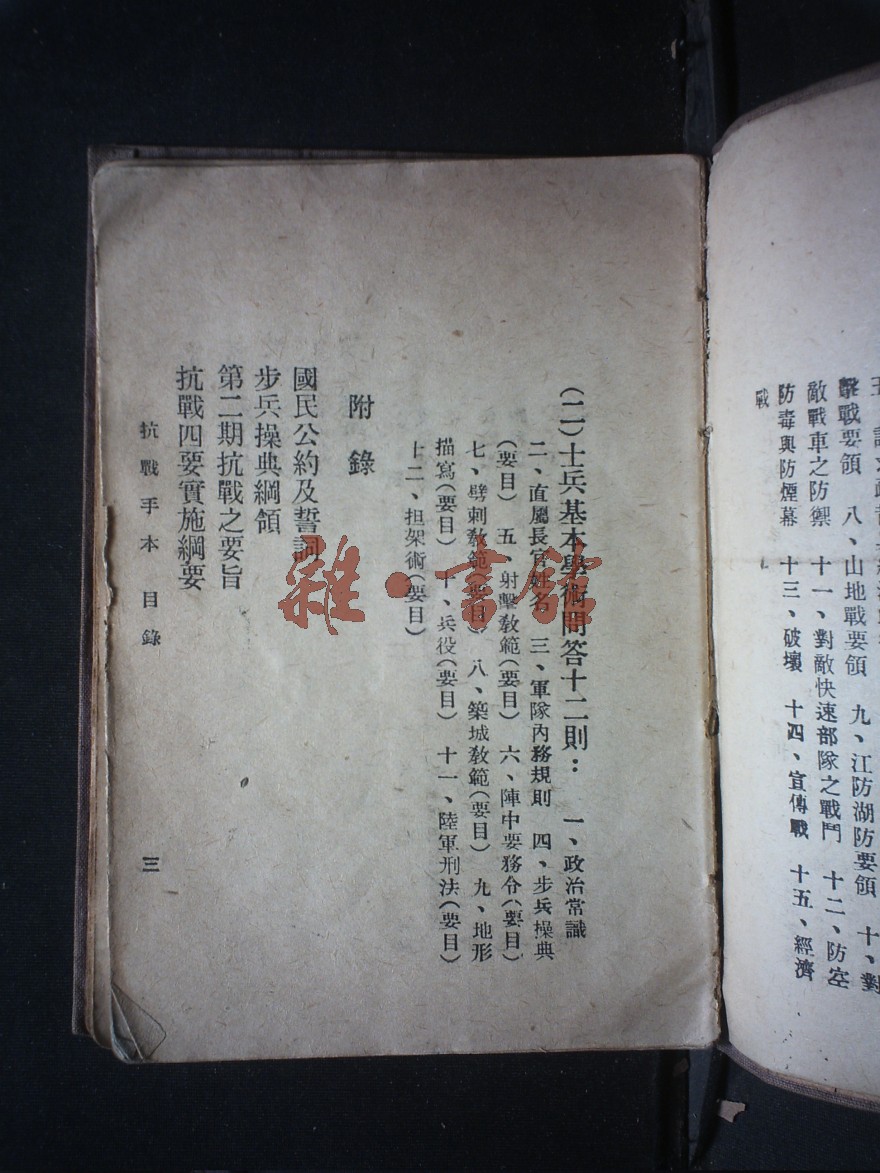 擊戰要領　八、山地戰要領　九、江防湖防要領　十、對
敵戰車之防禦　十一、對敵快速部隊之戰鬥　十二、防空
防毒與防煙幕　十三、破壞　十四、宣傳戰　十五、經濟
戰
(二)士兵基本學術問答十二則：　一、政治常識
二、直屬長官姓名　三、軍隊內務規則　四、步兵操典
(要目)　五、射擊敎範(要目)　六、陣中要務令(要目)
七、劈刺敎範(要目)　八、築城敎範(要目)　九、地形
描寫(要目)　十、兵役(要目)　十一、陸軍刑法(要目)
十二、担架術(要目)
附錄
國民公約及誓詞
步兵操典綱領
第二期抗戰之要旨
抗戰四要實施綱要
抗戰手本　目錄　三
雜·書館